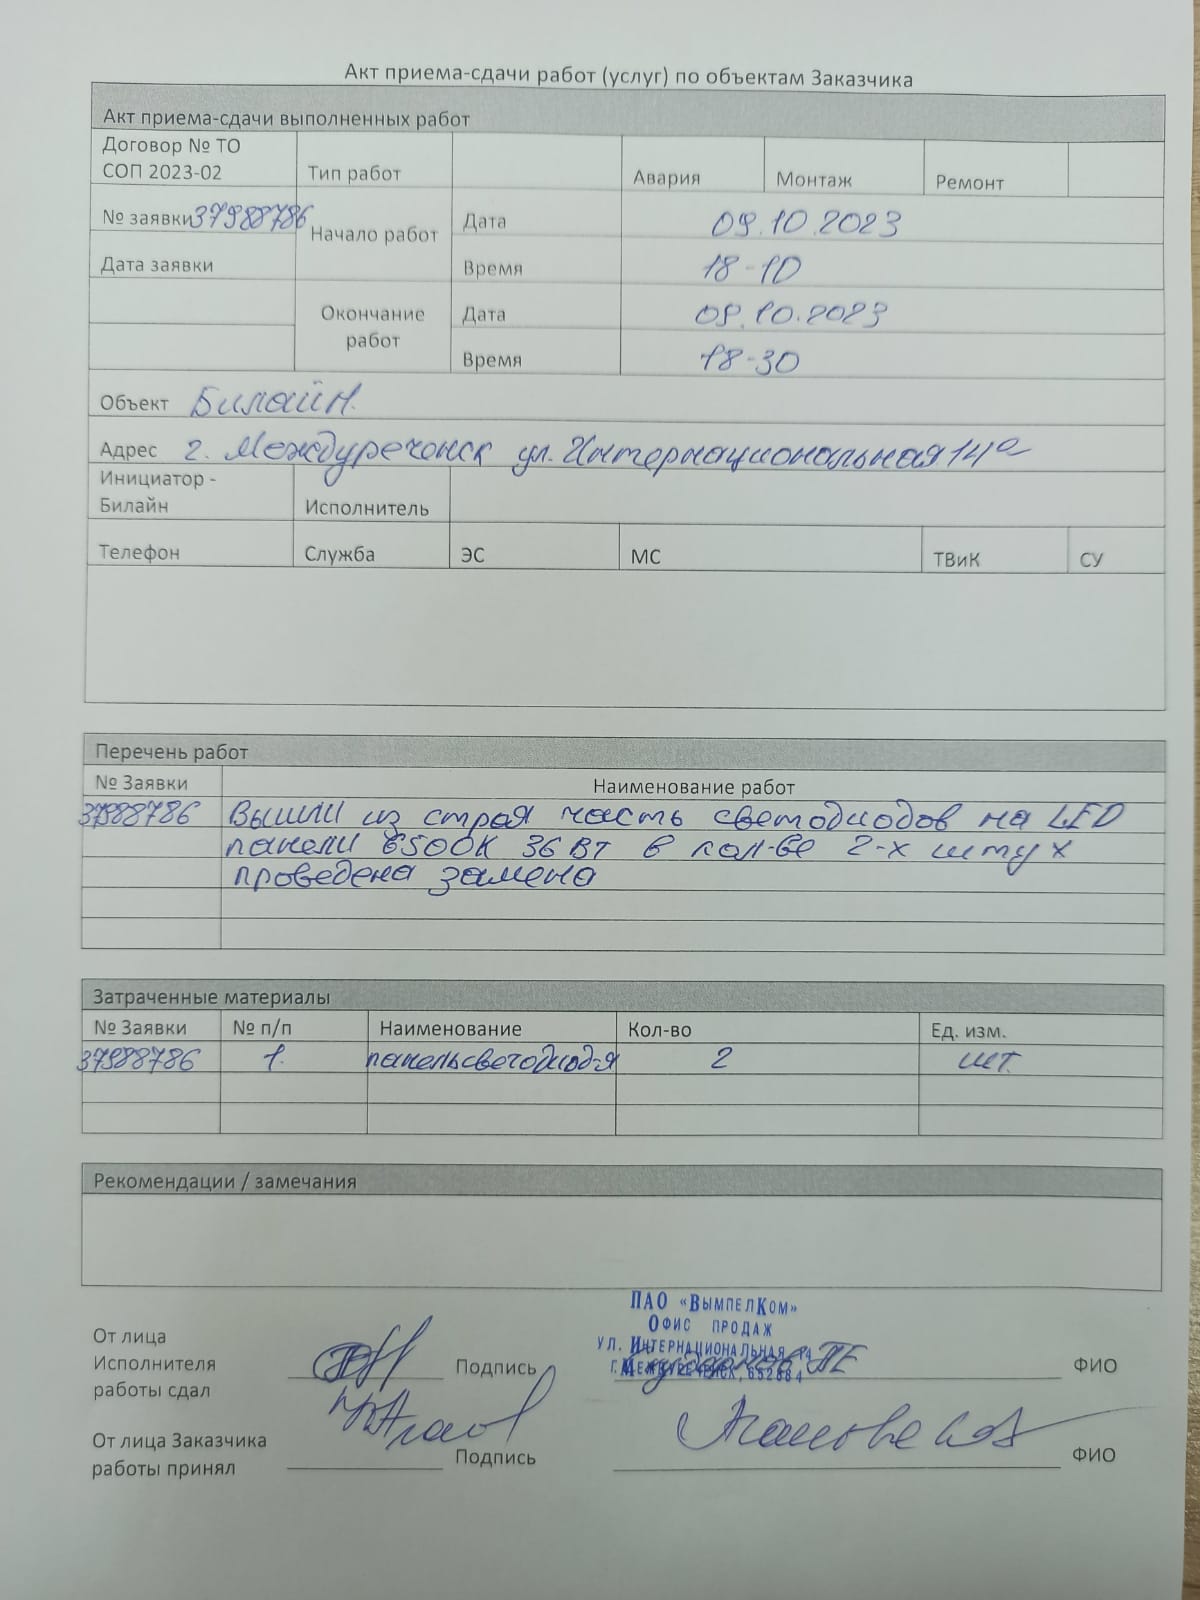 Акт приема-сдачи работ (услуг) по объектам Заказчика
Акт приема-сдачи выполненных работ
Договор № ТО
СОП 2023-02
Тип работ
Авария
Монтаж
Ремонт
№ заявки 37988786
Начало работ
Дата
09.10.2023
Дата заявки
Время
18-10
Окончание
работ
Дата
09.10.2023
Время
18-30
Объект Билайн.
Адрес г. Междуреченск ул. Интернациональная 14а
Инициатор -
Билайн
Исполнитель
Телефон
Служба
ЭС
МС
ТВиК
СУ
Перечень работ
№ Заявки
Наименование работ
37988786 Вышли из строя часть светодиодов на LED
панели 6500К 36Вт в кол-ве 2-х штук
проведена замена
Затраченные материалы
№ Заявки
№ п/п
Наименование
Кол-во
Ед. изм.
37988786 1. панель светодиод-я 2 шт.
Рекомендации / замечания
ПАО «ВымпелКом»
Офис продаж
ул. Интернациональная, 14
г. Междуреченск, 652884
От лица
Исполнителя
работы сдал
Подпись
ФИО
От лица Заказчика
работы принял
Подпись
ФИО